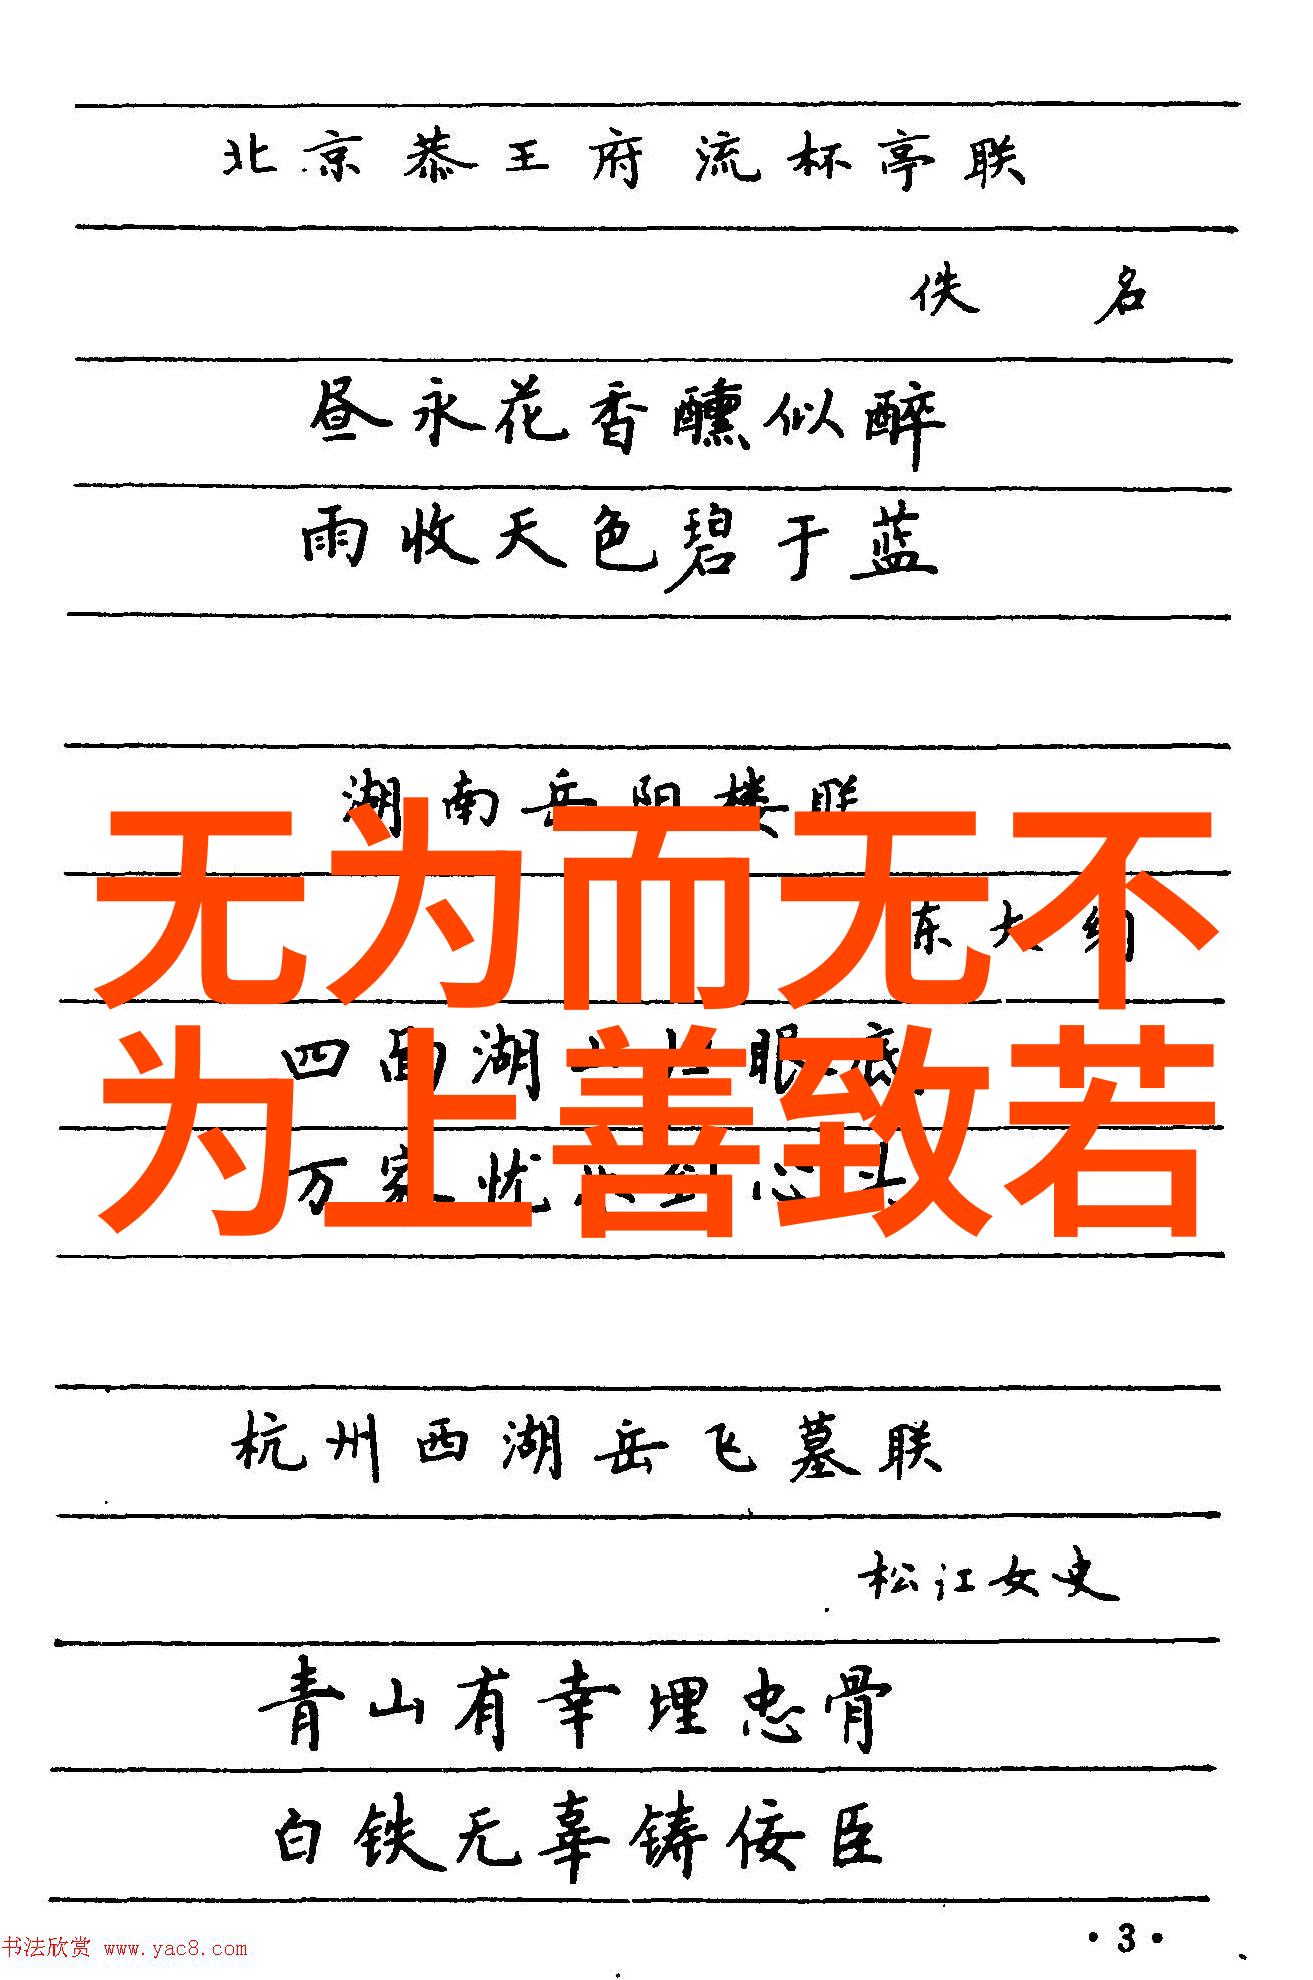 北京恭王府流杯亭联
佚名
昼永花香醺似醉
雨收天色碧于蓝
湖南岳阳楼联
无为而无不
东大纲
四面湖山收眼底
为上善致若
万家忧乐到心头
杭州西湖岳飞墓联
松江女史
青山有幸埋忠骨
白铁无辜铸佞臣
·3·
书法欣赏 www.yac8.com